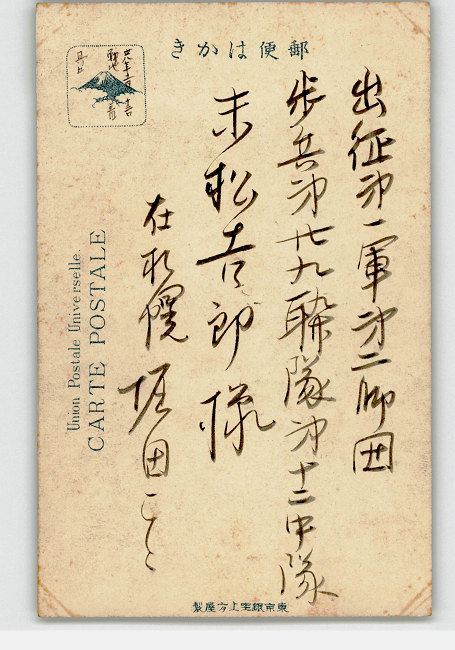 郵便はかき
出征第一軍第二師団
歩兵第廿九聯隊第十二中隊
末松吉郎様
在札幌 堀田こと
Union Postale Universelle.
CARTE POSTALE
東京銀座上方屋製